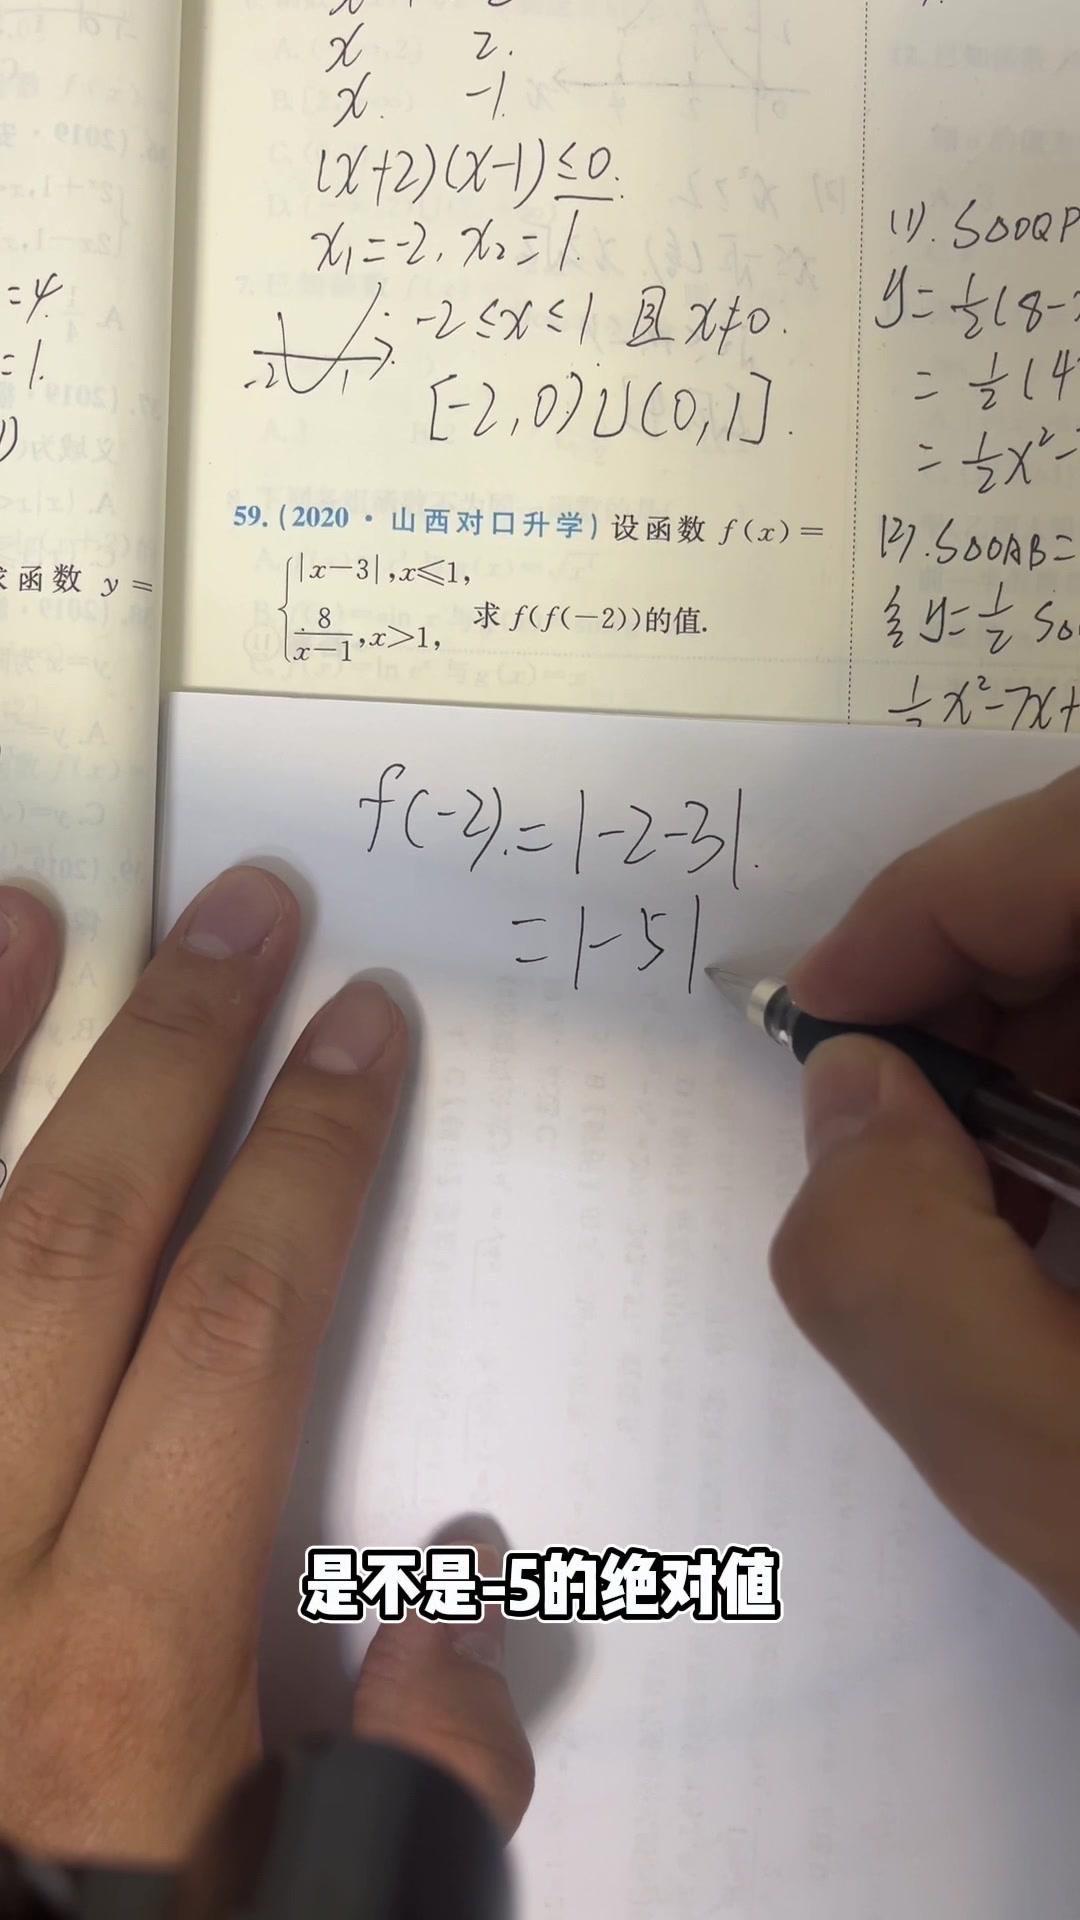 x 2.
x. -1.
(x+2)(x-1)≤0.
x₁=-2, x₂=1.
=4.
=1.
-2≤x≤1 且 x≠0.
-2 1
[-2,0)∪(0,1].
59.(2020·山西对口升学)设函数 f(x)=
{|x-3|,x≤1,
8/(x-1),x>1, 求 f(f(-2))的值.
函数 y=
(1). S△OQP
y=½(8-
=½(4
=½x²-
(2). S△OAB=
y=½S△
x²-7x+
f(-2).=|-2-3|.
=|-5|
是不是-5的绝对值